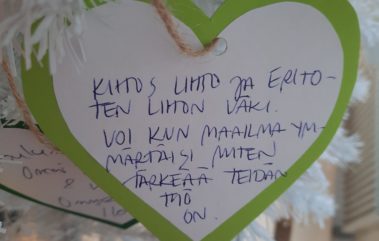 KIITOS LIHTO JA ERITO-
TEN LIHTON VÄKI.
VOI KUN MAAILMA YM-
MÄRTÄISI MITEN
TÄRKEÄÄ TEIDÄN
TYÖ
ON.